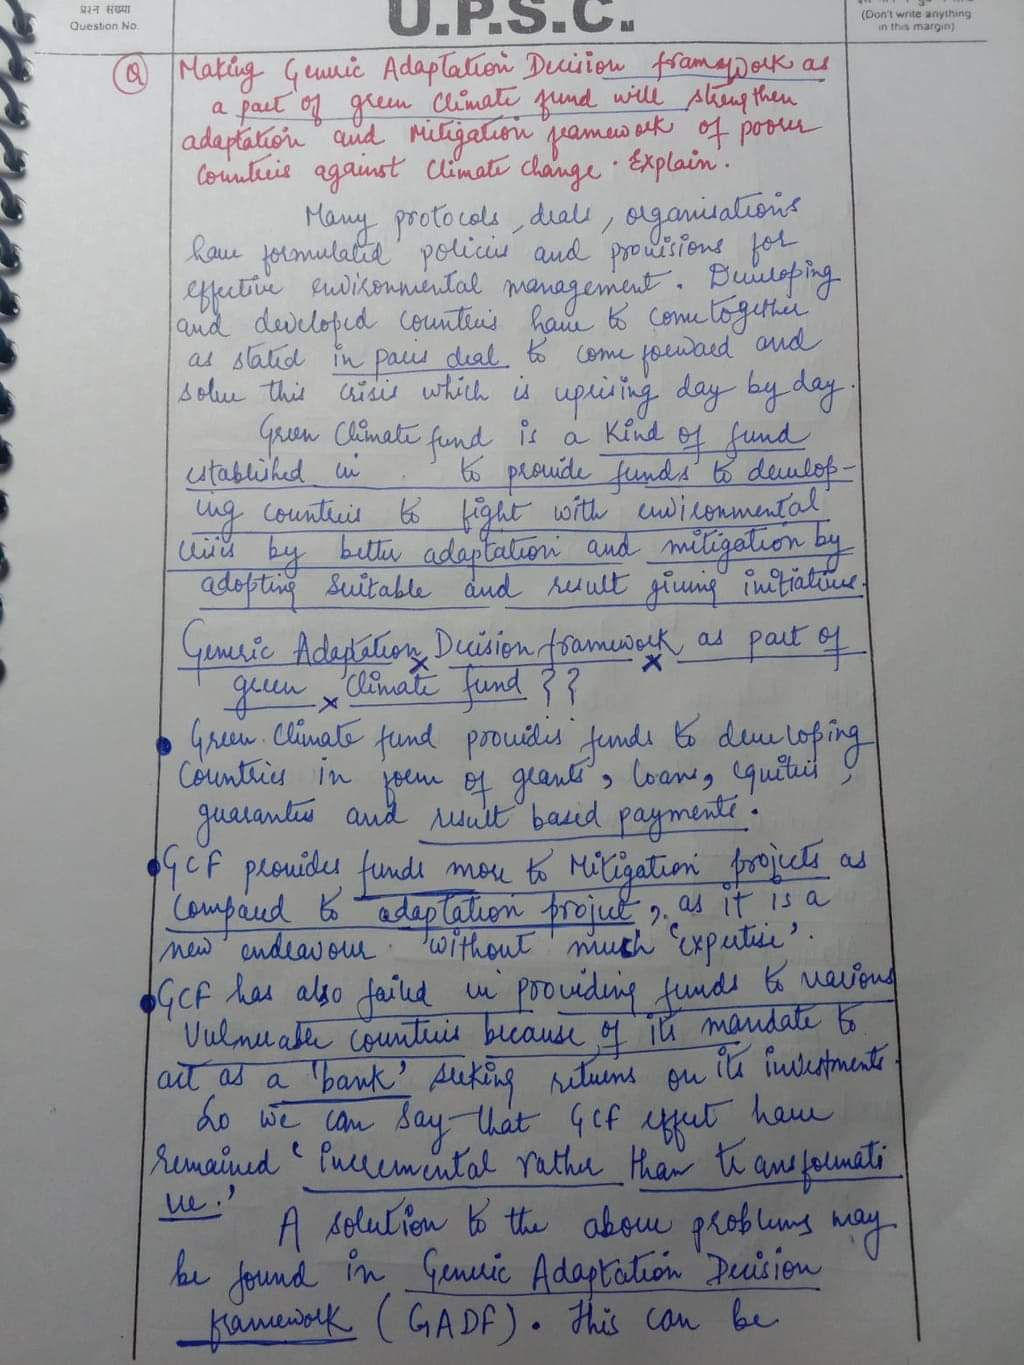 प्रश्न संख्या
Question No.
U.P.S.C.
(Don't write anything
in this margin)
Q Making Generic Adaptation Decision framework as
a part of green Climate fund will strengthen
adaptation and Mitigation framework of poorer
Countries against Climate change. Explain.
Many protocols, deals, organisations
have formulated policies and provisions for
effective environmental management. Developing
and developed countries have to come together
as stated in paris deal to come forward and
solve this crisis which is uprising day by day.
Green Climate fund is a Kind of fund
established in to provide funds to develop-
ing countries to fight with environmental
crisis by better adaptation and mitigation by
adopting suitable and result giving initiatives.
Generic Adaptation Decision framework as part of
green Climate fund ??
Green Climate fund provides funds to developing
Countries in form of grants, loans, equities,
guarantes and result based payments.
GCF provides funds more to Mitigation projects as
compared to adaptation project, as it is a
new endeavour without much 'expertise'.
GCF has also failed in providing funds to various
Vulnerable countries because of its mandate to
act as a 'bank' seeking returns on its investments.
So we can say that GCF effect have
remained 'incremental rather than transformati
ve.'
A solution to the above problems may
be found in Generic Adaptation Decision
framework (GADF). This can be